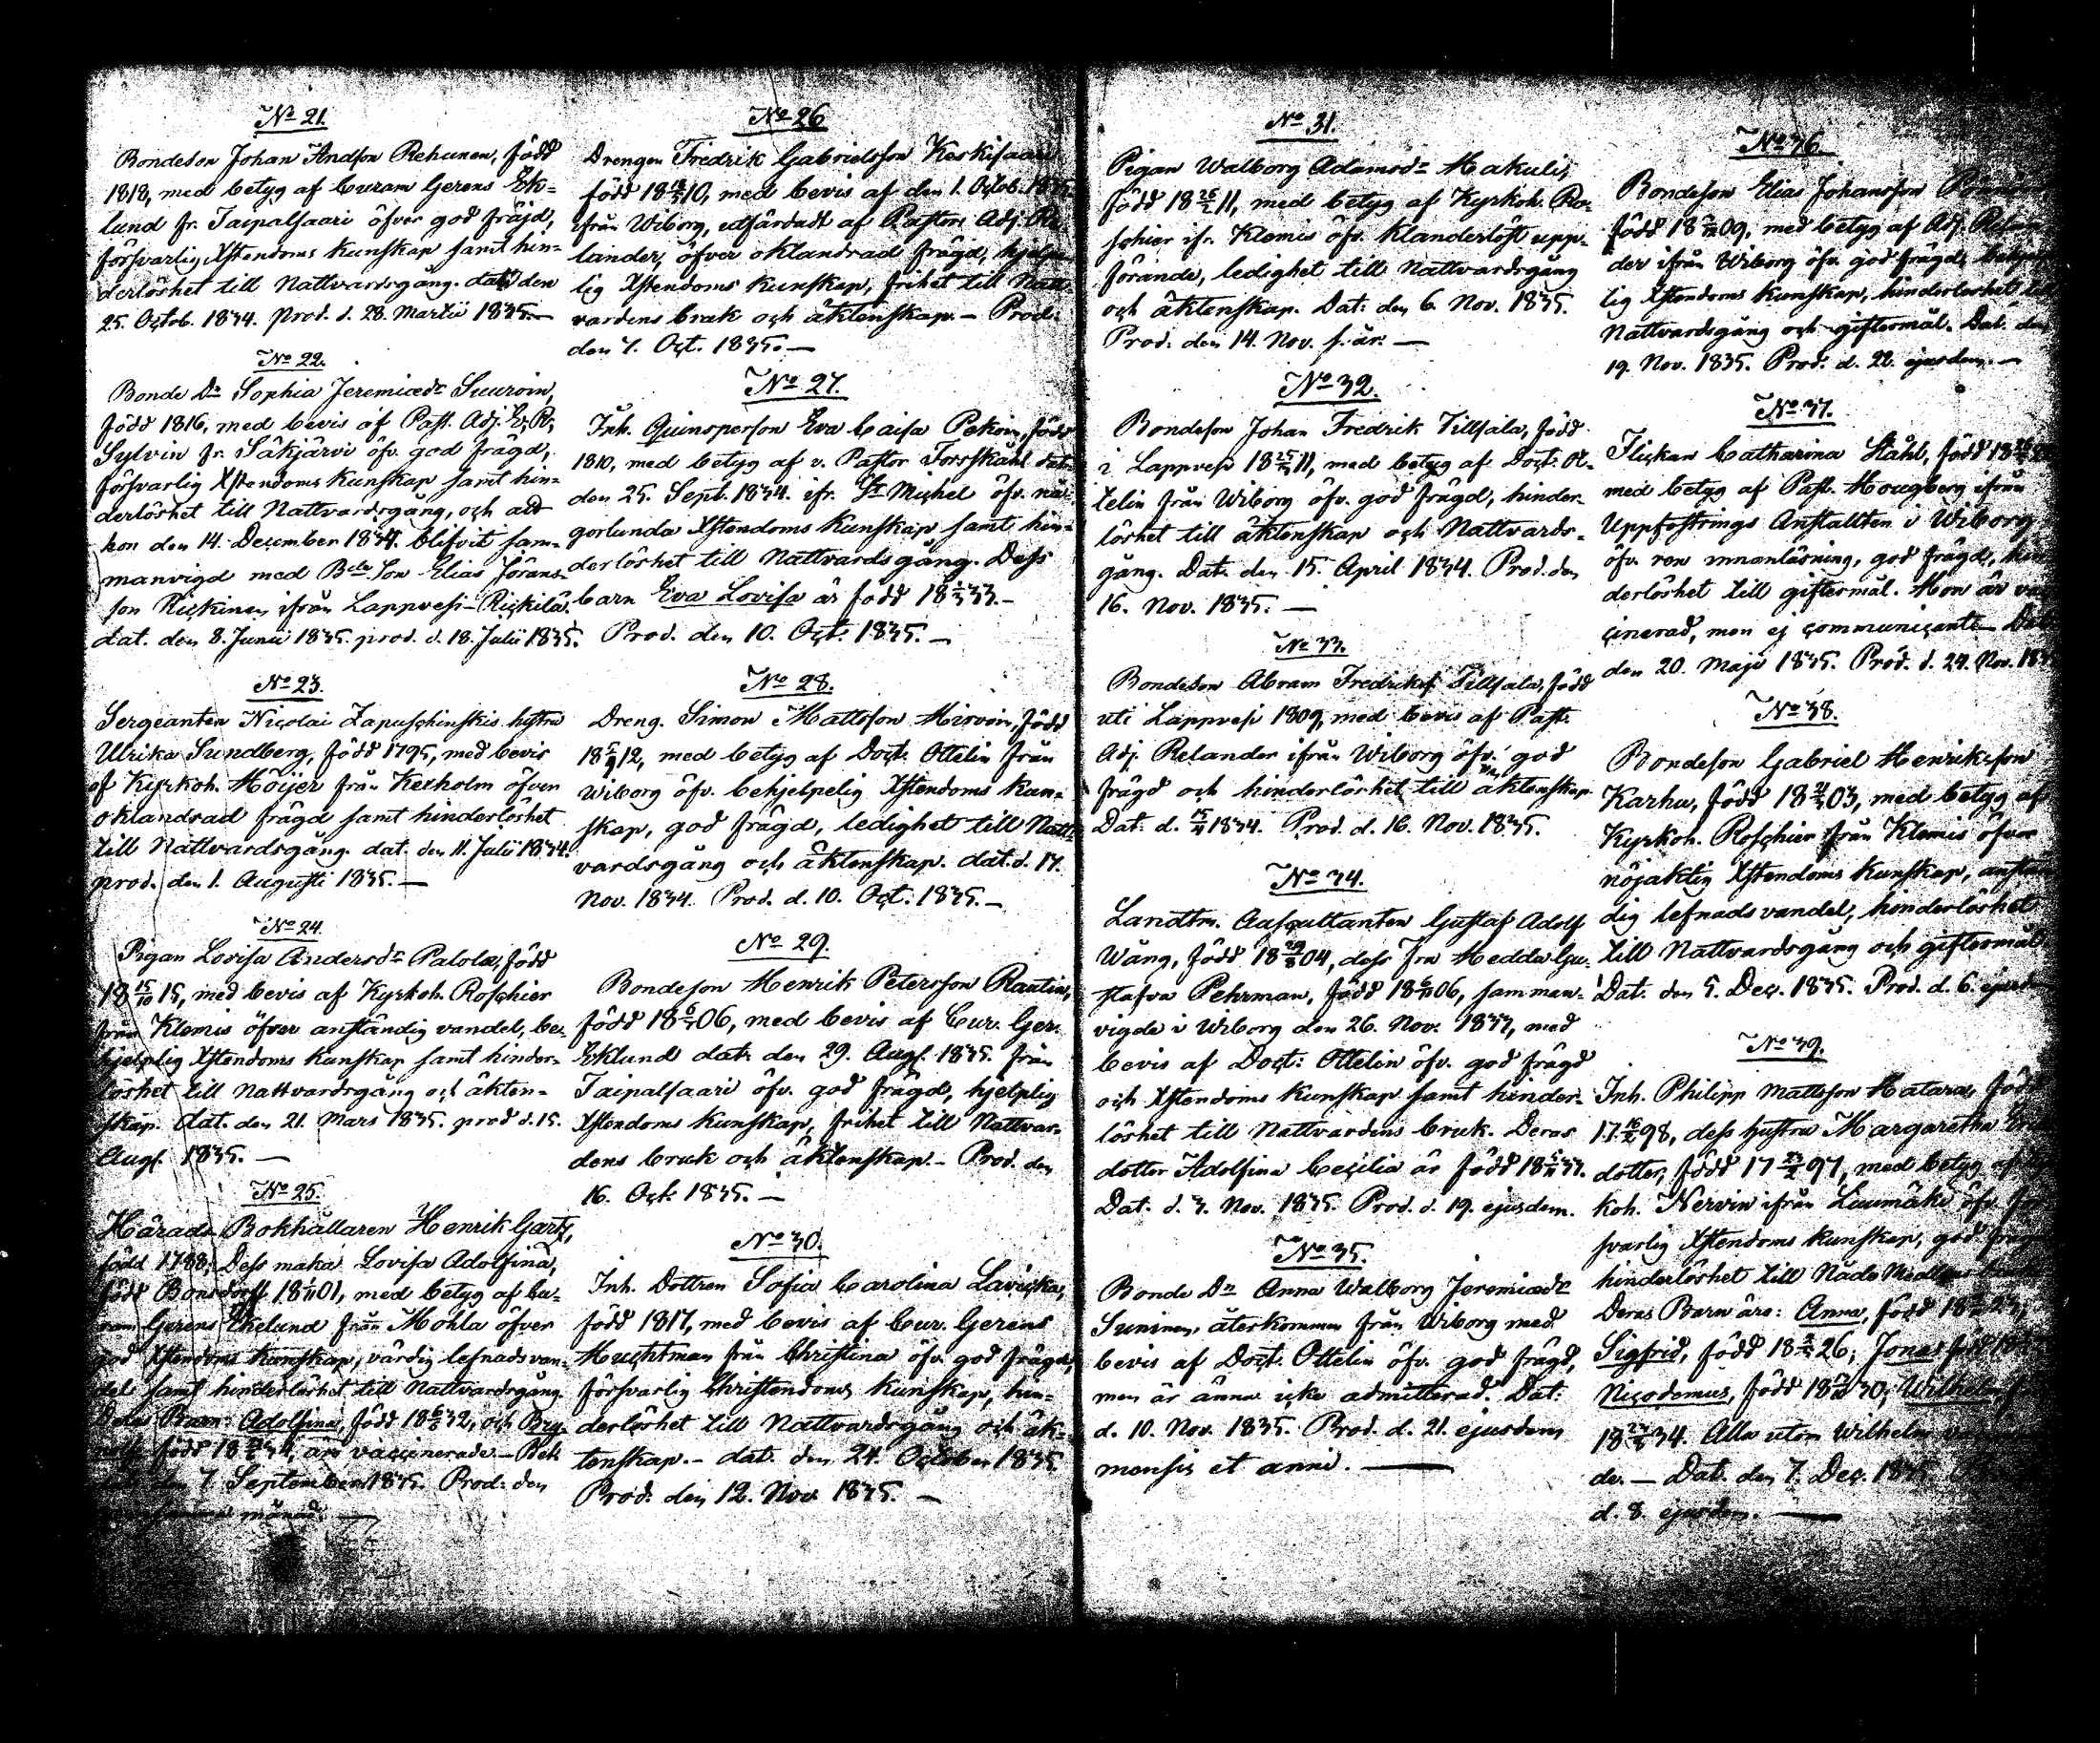 No 21.
Bondeson Johan Andsson Rehunen, född
1818, med betyg af Curam Gerens Ek-
lund fr. Taipalsaari öfver god fräjd,
försvarlig Xstendoms kunskap samt hin-
derlöshet till Nattvardsgång. dat. den
25. Octob. 1834. prod. d. 28. Martii 1835.—
No 22.
Bonde Dr Sophia Jeremiædr Suuroin,
född 1816, med bevis af Past. Adj.
Sylvin fr. Säkjärvi öfv. god frägd,
försvarlig Xstendoms kunskap samt hin-
derlöshet till Nattvardsgång, och att
hon den 14. December 1834. blifvit sam-
manvigd med Bde Son Elias Jörans-
son Kickinen ifrån Lappvesi-Rickilä.
dat. den 8. Junii 1835. prod. d. 18. Julii 1835.
No 23.
Sergeanten Nicolai Zapuschinskis hustru
Ulrika Sundberg, född 1795, med bevis
af Kyrkoh. Höijer från Kexholm öfver
oklandrad frägd samt hinderlöshet
till Nattvardsgång. dat. den 11. Julii 1834.
prod. den 1. Augusti 1835.—
No 24.
Pigan Lovisa Andersdr Palola, född
18 15/10 15, med bevis af Kyrkoh. Roschier
från Klemis öfver anständig vandel, be-
hjelplig Xstendoms kunskap samt hinder-
löshet till Nattvardsgång och äkten-
skap. dat. den 21. Mars 1835. prod d. 15.
Aug. 1835.—
No 25.
Härads Bokhållaren Henrik Gartz,
född 1788, Dess maka Lovisa Adolfina,
född Bonsdorff 18 1/11 01, med betyg af Cu-
ram Gerens Ekelund från Mohla öfver
god Xstendoms kunskap, värdig lefnadsvan-
del samt hinderlöshet till Nattvardsgång.
Deras Barn: Adolfina, född 18 6/5 32, och
född 18 34, äro vaccinerade.—
den 7. September 1835. Prod. den
månad.—
No 26
Drengen Fredrik Gabrielsson Keskisaari
född 18 10, med bevis af den 1. Octob. 1835
ifrån Wiborg, utfärdadt af Pastors Adj. Re-
lander, öfver oklandrad frägd, hjelp-
lig Xstendoms kunskap, frihet till Natt-
vardens bruk och äktenskap.— Prod.
den 7. Oct. 1835.—
No 27.
Inh. Qvinsperson Eva Caisa Pekoin, född
1810, med betyg af v. Pastor Forsskåhl dat.
den 25. Sept. 1834. ifr. St Michel öfv. nå-
gorlunda Xstendoms kunskap samt hin-
derlöshet till Nattvardsgång. Dess
barn Eva Lovisa är född 18 33.—
Prod. den 10. Oct. 1835.—
No 28.
Dreng. Simon Mattsson Hirvoin, född
18 5/9 12, med betyg af Doct. Ottelin från
Wiborg öfv. behjelpelig Xstendoms kun-
skap, god frägd, ledighet till Natt-
vardsgång och äktenskap. dat. d. 17.
Nov. 1834. Prod. d. 10. Oct. 1835.—
No 29.
Bondeson Henrik Petersson Rautin,
född 18 06, med bevis af Cur. Ger.
Eklund dat. den 29. Aug. 1835. från
Taipalsaari öfv. god frägd, hjelplig
Xstendoms kunskap, frihet till Nattvar-
dens bruk och äktenskap.— Prod. den
16. Oct. 1835.—
No 30.
Inh. Dottren Sofia Carolina Lavicka,
född 1817, med bevis af Cur. Gerens
Huchtman från Christina öfv. god frägd,
försvarlig Christendoms kunskap, hin-
derlöshet till Nattvardsgång och äk-
tenskap.— dat. den 24. October 1835.
Prod. den 12. Nov. 1835.—
No 31.
Pigan Walborg Adamsdr Hakuli,
född 18 11, med betyg af Kyrkoh. Ro-
schier ifr. Klemis öfv. klanderlöst upp-
förande, ledighet till Nattvardsgång
och äktenskap. Dat. den 6. Nov. 1835.
Prod. den 14. Nov. s. år.—
No 32.
Bondeson Johan Fredrik Tillsala, född
i Lappvesi 18 11, med betyg af Doct. Ot-
telin från Wiborg öfv. god frägd, hinder-
löshet till äktenskap och Nattvards-
gång. Dat. den 15. April 1834. Prod. den
16. Nov. 1835.—
No 33.
Bondeson Abram Fredriks. Tillsala, född
uti Lappvesi 1809, med bevis af Past.
Adj. Relander ifrån Wiborg öfv. god
frägd och hinderlöshet till äktenskap.
Dat. d. 1834. Prod. d. 16. Nov. 1835.
No 34.
Landtm. Auscultanten Gustaf Adolf
Wång, född 18 29/8 04, dess fru Hedda Gu-
stafva Pehrman, född 18 06, samman-
vigde i Wiborg den 26. Nov. 1832, med
bevis af Doct. Ottelin öfv. god frägd
och Xstendoms kunskap samt hinder-
löshet till Nattvardens bruk. Deras
dotter Adolfina Cecilia är född 18 33.
Dat. d. 3. Nov. 1835. Prod. d. 19. ejusdem.
No 35.
Bonde Dr Anna Walborg Jeremiædr
Suninen, återkommen från Wiborg med
bevis af Doct. Ottelin öfv. god frägd,
men är ännu icke admitterad. Dat.
d. 10. Nov. 1835. Prod. d. 21. ejusdem
mensis et anni.—
No 36.
Bondeson Elias Johansson
född 18 09, med betyg af Adj. Relan-
der ifrån Wiborg öfv. god frägd, behjelp-
lig Xstendoms kunskap, hinderlöshet till
Nattvardsgång och giftermål. Dat. den
19. Nov. 1835. Prod. d. 22. ejusdem.—
No 37.
Flickan Catharina Ståhl, född 18
med betyg af Past. Hougberg ifrån
Uppfostrings Anstallten i Wiborg
öfv. ren innanläsning, god frägd, hin-
derlöshet till giftermål. Hon är vac-
cinerad, men ej communicant.— Dat.
den 20. Maji 1835. Prod. d. 24. Nov. 1835
No 38.
Bondeson Gabriel Henriksson
Karhu, född 18 03, med betyg af
Kyrkoh. Roschier från Klemis öfver
nöjaktig Xstendoms kunskap, anstän-
dig lefnadsvandel, hinderlöshet
till Nattvardsgång och giftermål.
Dat. den 5. Dec. 1835. Prod. d. 6. ejusdem
No 39.
Inh. Philipp Mattsson Hatara, född
17 98, dess hustru Margaretha
dotter, född 17 97, med betyg af Kyr-
koh. Nervin ifrån Luumäki öfv. för-
svarlig Xstendoms kunskap, god frägd
hinderlöshet till Nåde Medlens
Deras Barn äro: Anna, född 18
Sigfrid, född 18 26; Jonas född
Nicodemus, född 18 30; Wilhelm
18 34. Alla utom Wilhelm
de.— Dat. den 7. Dec. 1835
d. 8. ejusdem.—